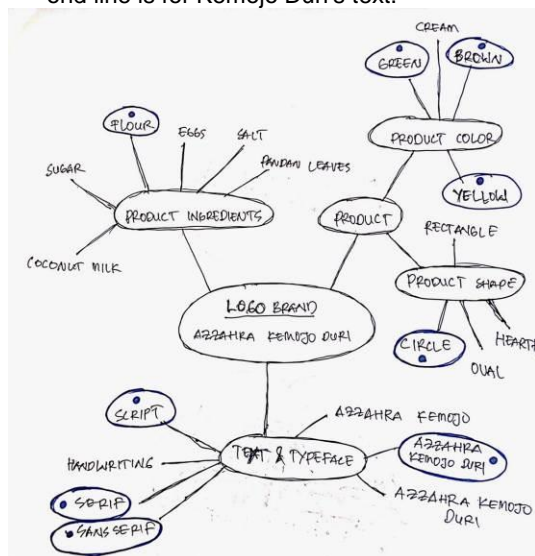 end line is for Kemojo Duri's text.
CREAM
GREEN
BROWN
PRODUCT COLOR
YELLOW
FLOUR
EGGS
SALT
PANDAN LEAVES
SUGAR
PRODUCT INGREDIENTS
COCONUT MILK
PRODUCT
RECTANGLE
PRODUCT SHAPE
HEART
OVAL
CIRCLE
LOGO BRAND
AZZAHRA KEMOJO DURI
SCRIPT
HANDWRITING
SERIF
SANS SERIF
TEXT & TYPEFACE
AZZAHRA KEMOJO
AZZAHRA
KEMOJO DURI
AZZAHRA KEMOJO
DURI